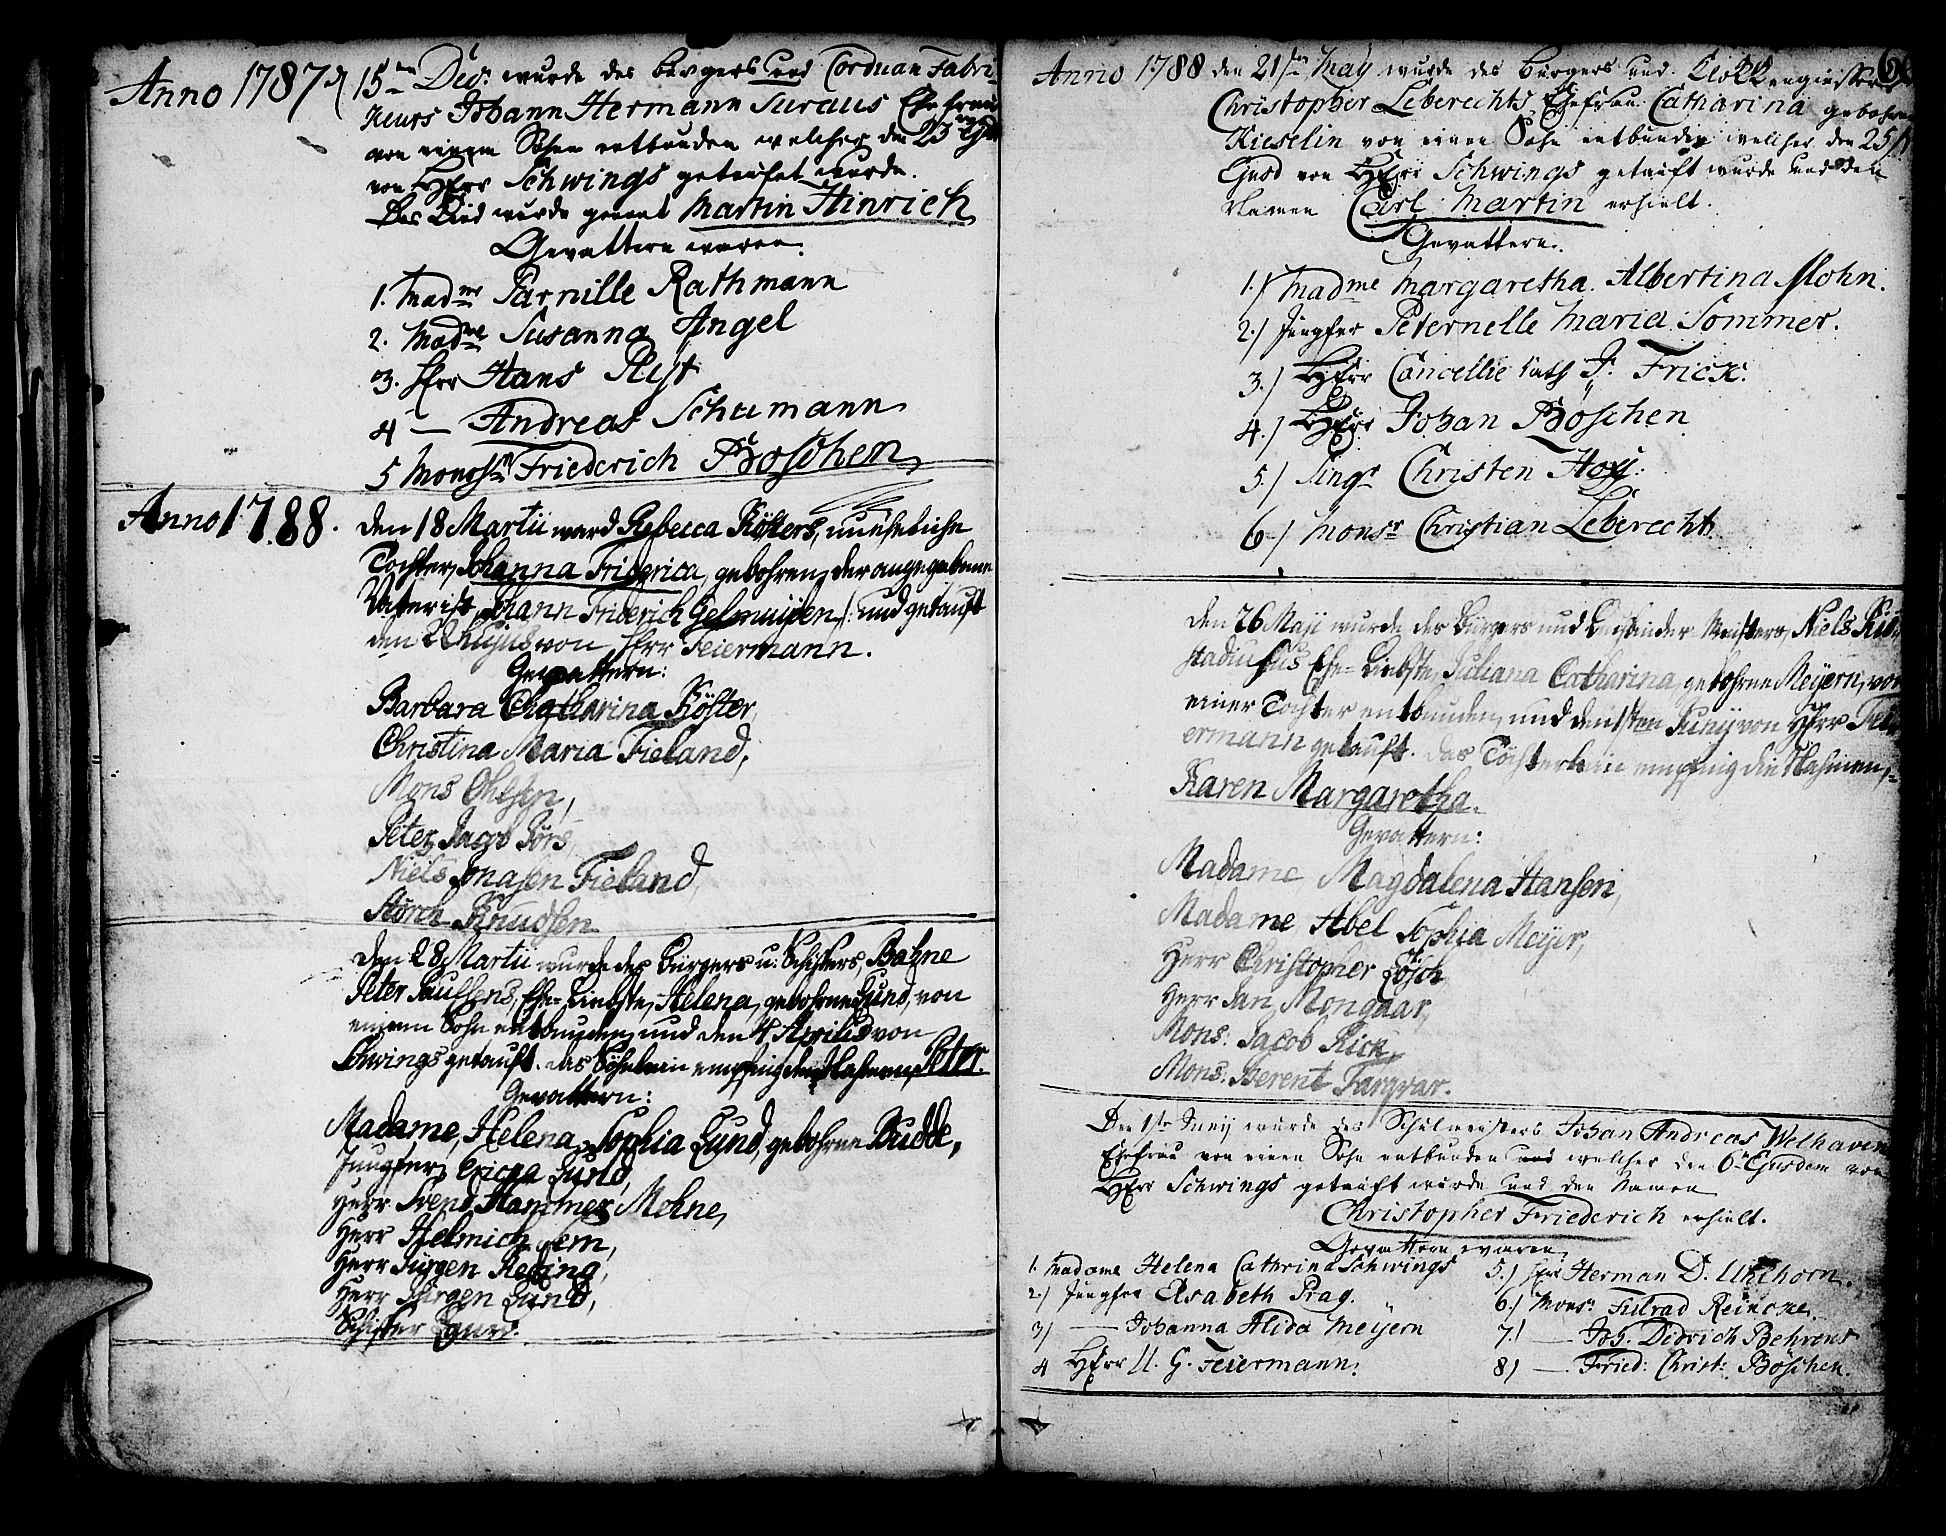 Anno 1787 d 15ten Dec: wurde des bürgers und Corduan Fabri-
keurs Johann Hermann Suraus Ehefrau
von einem Sohn entbunden welcher den 23
von Herr Schwings getaufet wurde.
Das Kind wurde genent Martin Hinrich
Gevattern waren.
1. Madme Parnille Rathmann
2. Madme Susanna Angel
3. Herr Hans
4 — Andreas Schumann
5 Monsr Friederich Böschen
Anno 1788. den 18 Martii ward Rebecca Kösters, uneheliche
Tochter, Johanna Friderica, gebohren, der angegebene
Vater ist Johann Friderich Gelmuyden, und getauft
den 22 hujus von Herr Feiermann.
Gevattern:
Barbara Chatharina Köster,
Christina Maria Fieland,
Mons Ohlsen,
Peter Jacob
Niels Jonasen Fieland,
Störch Knudsen
den 28 Martii wurde des Bürgers u: Schiffers, Bahne
Peter Paulsens, Ehe-Liebste, Helena, gebohrne Lund, von
einem Sohn entbunden, und den 4 Aprilis von
Schwings getauft. das Söhnlein empfing den Nahmen, Peter.
Gevattern:
Madame, Helena, Sophia Lund, gebohrne Budde,
Jungfer, Ericka Lund,
Herr Svend Hammer Mohne,
Herr Helmich Fem,
Herr Jürgen Reting,
Herr Jürgen Lund,
Schiffer
Anno 1788 den 21sten May wurde des Bürgers und Klokkengiessers
Christopher Leberechts Ehefrau Catharina gebohrne
Kieselin von einen Sohn entbunden welcher den 25st
Ejusd von Herr Schwings getauft wurde und den
Namen Carl Martin erhielt.
Gevattern.
1.) Madme Margaretha Albertina Mohn.
2.) Jungfer Peternelle Maria Sommer.
3.) Herr Cancellie rath J. Frick.
4.) Herr Johan Böschen
5.) Singr Christen
6.) Monsr Christian Leberecht.
den 26 Maji wurde des Bürgers und Meisters, Niels
Ehe-Liebste, Juliana Catharina, gebohrne Meyern, von
einer Tochter entbunden, und den 1sten Junij von Herr Fei-
ermann getauft. das Töchterlein empfing die Nahmen,
Karen Margaretha.
Gevattern:
Madame Magdalena Hansen,
Madame Abel Sophia Meyer,
Herr Christopher Lösch
Herr Jan, Mongaar,
Mons: Jacob Rick,
Mons: Berent Fargvar.
Den 1ste Junij wurde des Schulmeisters Johan Andreas Welhaven
Ehefrau von einen Sohn entbunden und welcher den 6t Ejusdem von
Herr Schwings getauft wurde und den Namen
Christopher Friederich erhielt.
Gevattern waren
1. Madame Helena Cathrina Schwings
2.) Jungfer Elsabeth Prag.
3) — Johanna Alida Meyern
4 Herr U. G. Feiermann.
5.) Herr Herman D. Uhlhorn.
6.) Monsr Fielrad Reincke.
7.) — Joh. Didrich Behrens
8) — Fried: Christ: Böschen.